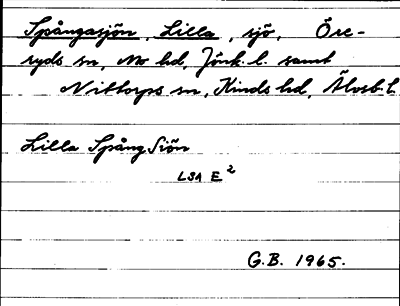 Spångasjön, Lilla, sjö, Öre-
ryds sn, Mo hd, Jönk. l. samt
Nittorps sn, Kinds hd, Älvsb. l.
Lilla Spång Siön
LSA E²
G.B. 1965.